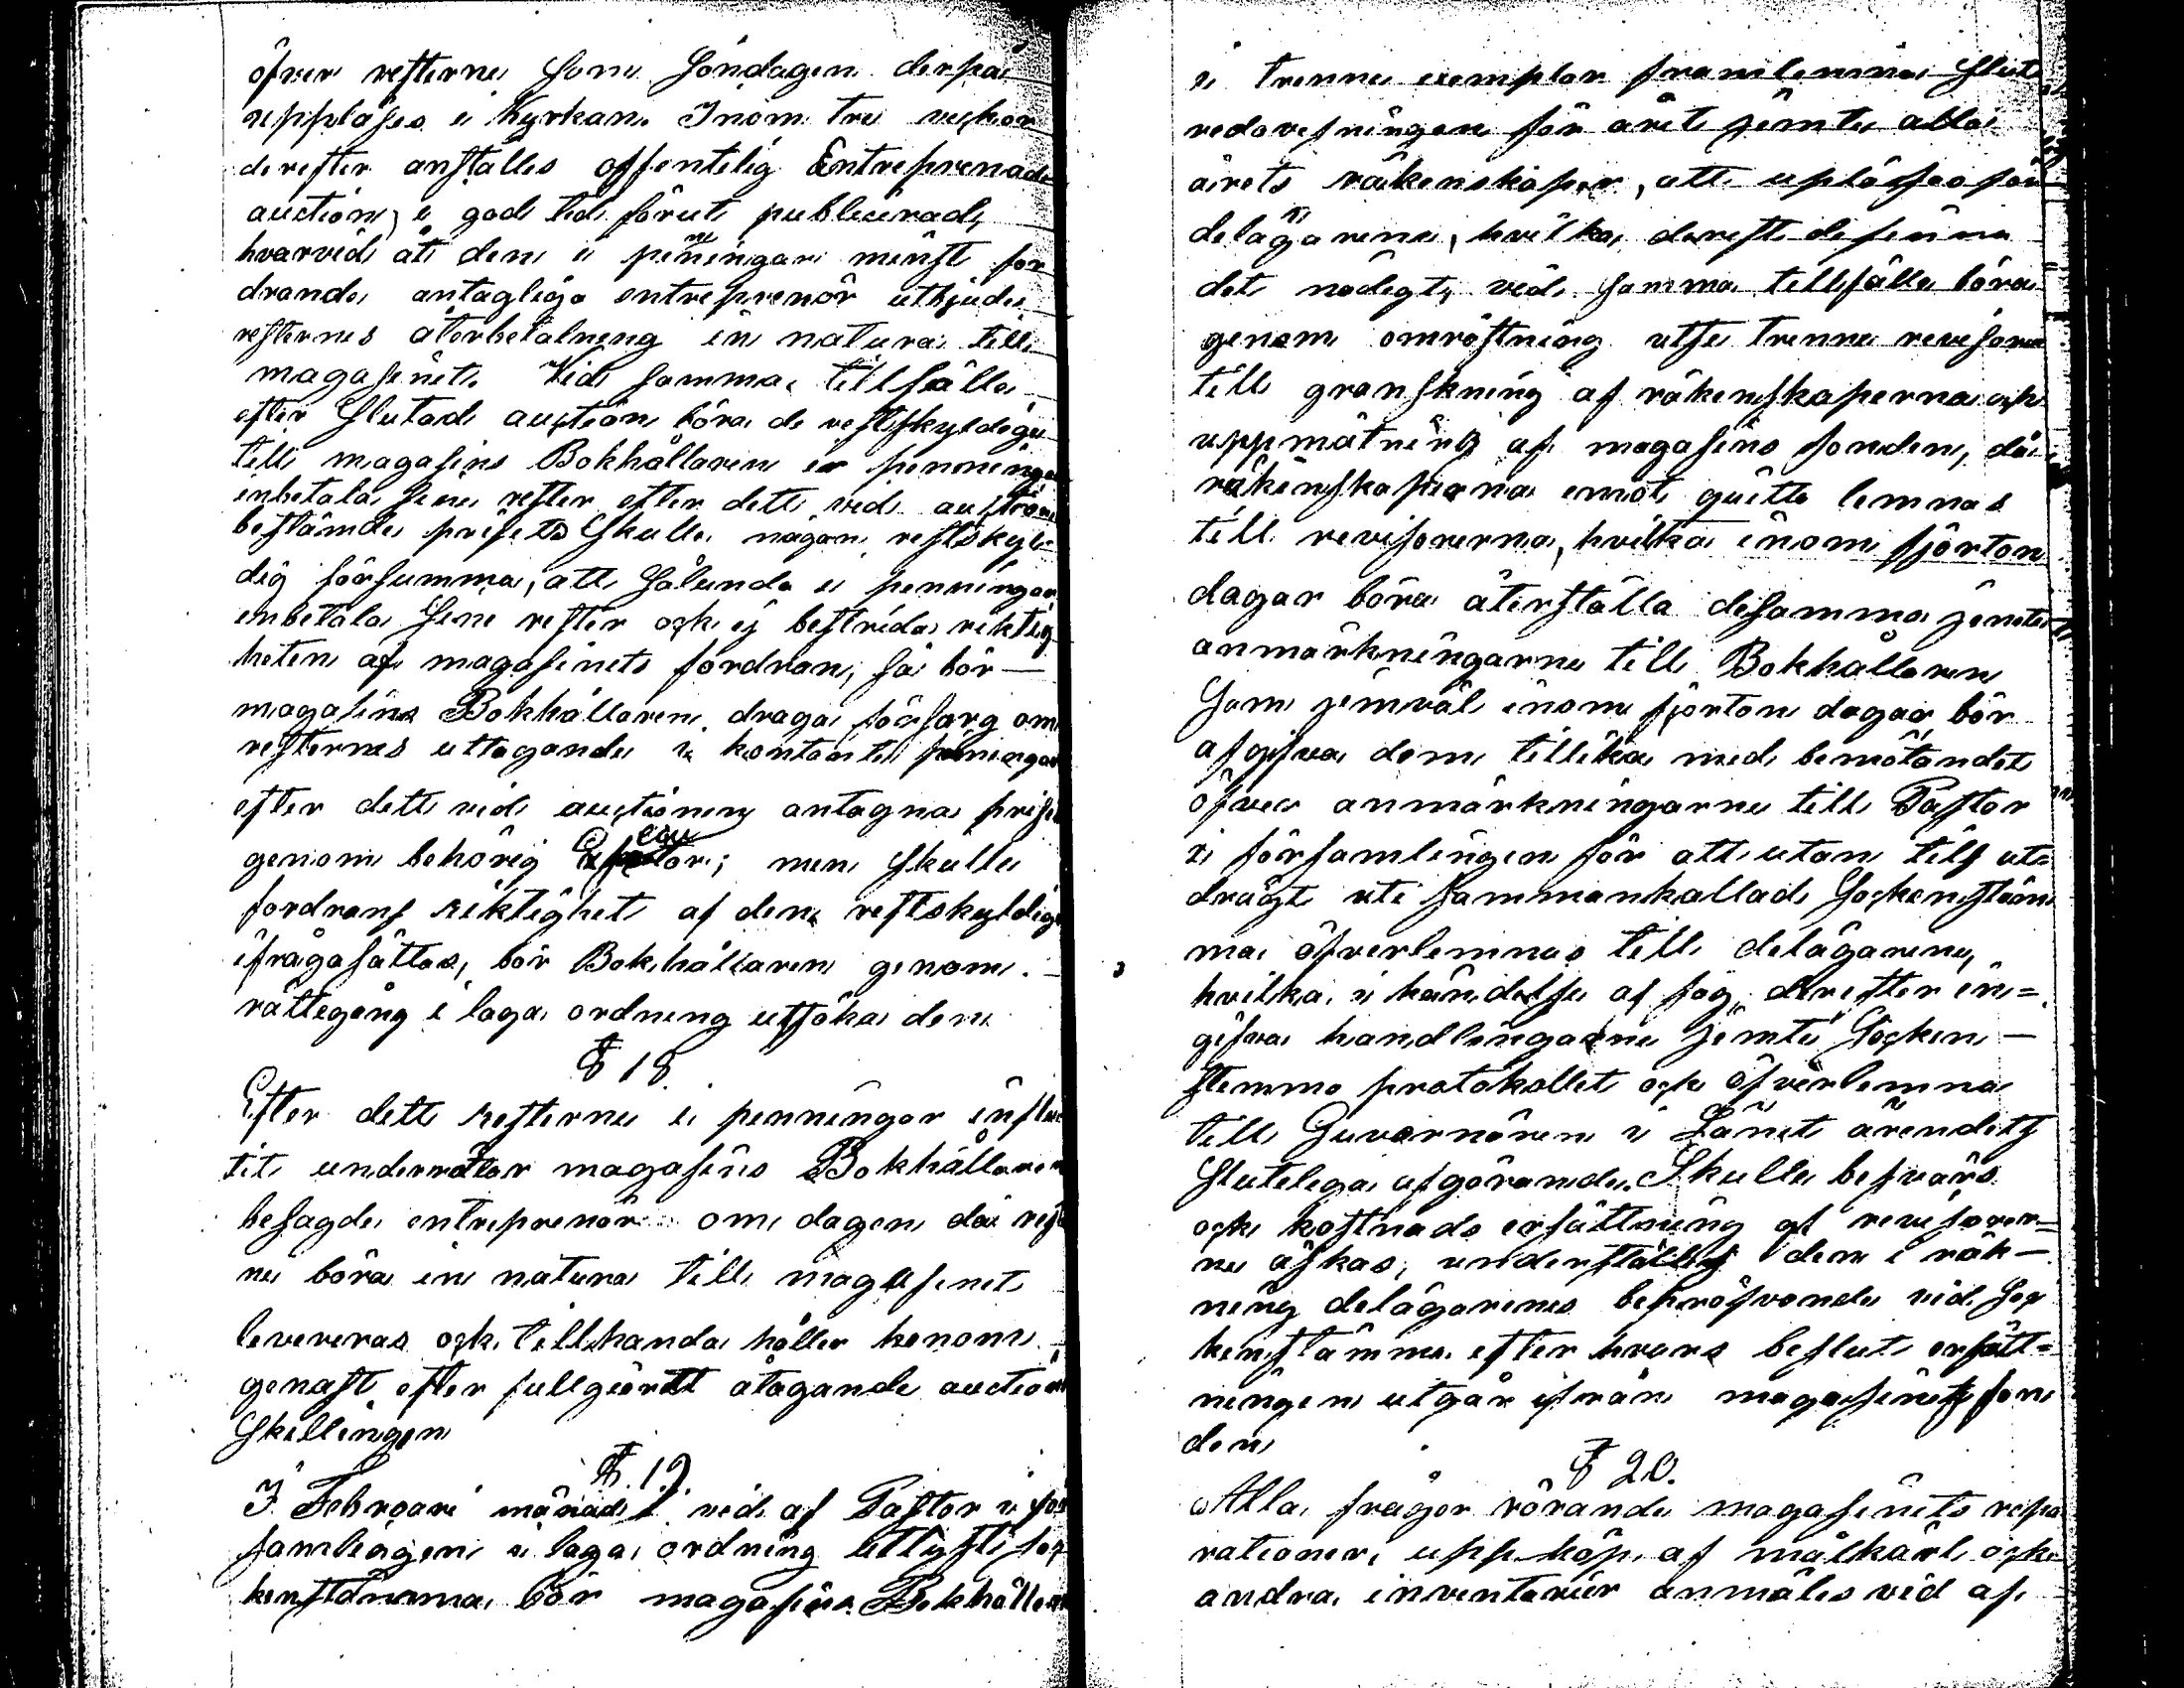 öfver resterne som Söndagen derpå
uppläses i Kyrkan. Inom tre veckor
derefter anställes offentelig Entreprenade
auction, i god tid förut publicerad,
hvarvid åt den i peningar minst for
drande antagliga entreprenör utbjudes
resternes återbetalning in natura till
magasinet. Vid samma tillfälle
efter slutad auction böra de restskyldige
till magasins Bokhållaren i penningar
inbetala sine rester efter dett vid auction
bestämde priset. Skulle någon restskyl-
dig försumma, att sålunda i penningar
inbetala sine rester och ej bestrida riktig
heten af magasinets fordran, så bör —
magasins Bokhållaren draga försorg om
resternes uttagande i kontante peningar
efter dett vid auctionen antagna priset
genom behörig Executor; men skulle
fordrans riktighet af den restskyldige
ifrågasättas, bör Bokhållaren genom
rättegång i laga ordning utsöka den
§ 18.
Efter dett resterne i penningar influ
tit underrättar magasins Bokhållaren
besagde entreprenör om dagen då rest
ne böra in natura till magasinet
levereras och tillhanda håller honom
genast efter fullgiordt åtagande auction
Skillingen
§. 19.
I Februari månad vid af Pastor i för
samlingen i laga ordning utlyst soc
kenstämma bör magasins Bokhållar
i trenne exemplar framlemna slut
redovisningen för året jemte alla
årets räkenskaper, att upläsas för
delägarene, hvilka, derest de finna
det nödigt, vid samma tillfälle böra
genom omröstning utse trenne revisorer
till granskning af räkenskaperna och
uppmätning af magasins fonden, då
räkenskaperna emot quitto lemnas
till revisorerna, hvilka inom fjorton
dagar böra återställa desamma jemte
anmärkningarne till Bokhållaren
som jemväl inom fjorton dagar bör
afgifva dem tillika med bemötandet
öfver anmärkningarne till Pastor
i församlingen för att utan tids ut-
drägt uti sammankallad Sockenstäm
ma öfverlemnas till delägarene,
hvilka i händelse af fog, derefter in-
gifva handlingarne jemte Socken —
stemmo protokollet och öfverlemna
till Guvernören i Länet ärendets
slutelega afgörande. Skulle besvärs
och kostnads ersättning af revisorer-
ne äskas, underställes den i räk —
ning delägarenes bepröfvande vid Soc
kenstämma efter hvars beslut ersätt-
ningen utgår ifrån magasinets fon
den
§ 20.
Alla frågor rörande magasinets repa
rationer, upp köp af målkärl och
andra inventarier anmäles vid af